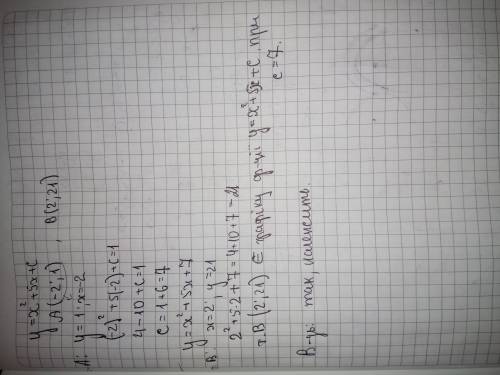 y = x² + 5x + c
A(-2; 1) , B(2; 21)
A: y = 1; x = -2
(-2)² + 5(-2) + c = 1
4 - 10 + c = 1
c = 1 + 6 = 7
y = x² + 5x + 7
B: x = 2; y = 21
2² + 5·2 + 7 = 4 + 10 + 7 = 21
т. B (2; 21) ∈ графіку ф-ції y = x² + 5x + c при
c = 7.
В-дь: так, належить.